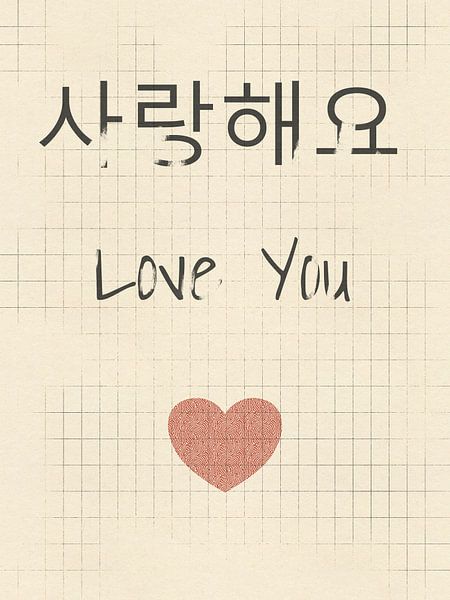 사랑해요
Love You